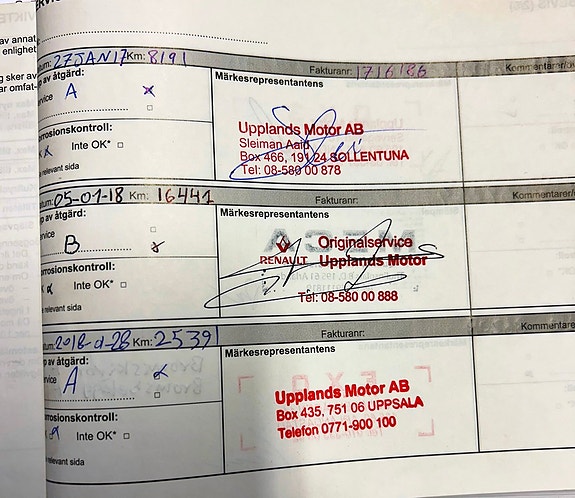 av annat
enlighet
g sker av
ar omfat-
tum: 27JAN17 Km: 8191 Fakturanr: 1716186 Kommentarer/öv
p av åtgärd:
ervice A x
Märkesrepresentantens
Upplands Motor AB
Sleiman Aaid
Box 466, 191 24 SOLLENTUNA
Tel: 08-580 00 878
orrosionskontroll:
Inte OK*
relevant sida
tum: 05-01-18 Km: 16441 Fakturanr: Kommentarer/ö
p av åtgärd:
ervice
B
Märkesrepresentantens
RENAULT
Originalservice
Upplands Motor
Tel: 08-580 00 888
orrosionskontroll:
Inte OK*
relevant sida
tum: Km: 25391 Fakturanr: Kommentare
p av åtgärd:
ervice A
Märkesrepresentantens
Upplands Motor AB
Box 435, 751 06 UPPSALA
Telefon 0771-900 100
orrosionskontroll:
Inte OK*
relevant sida